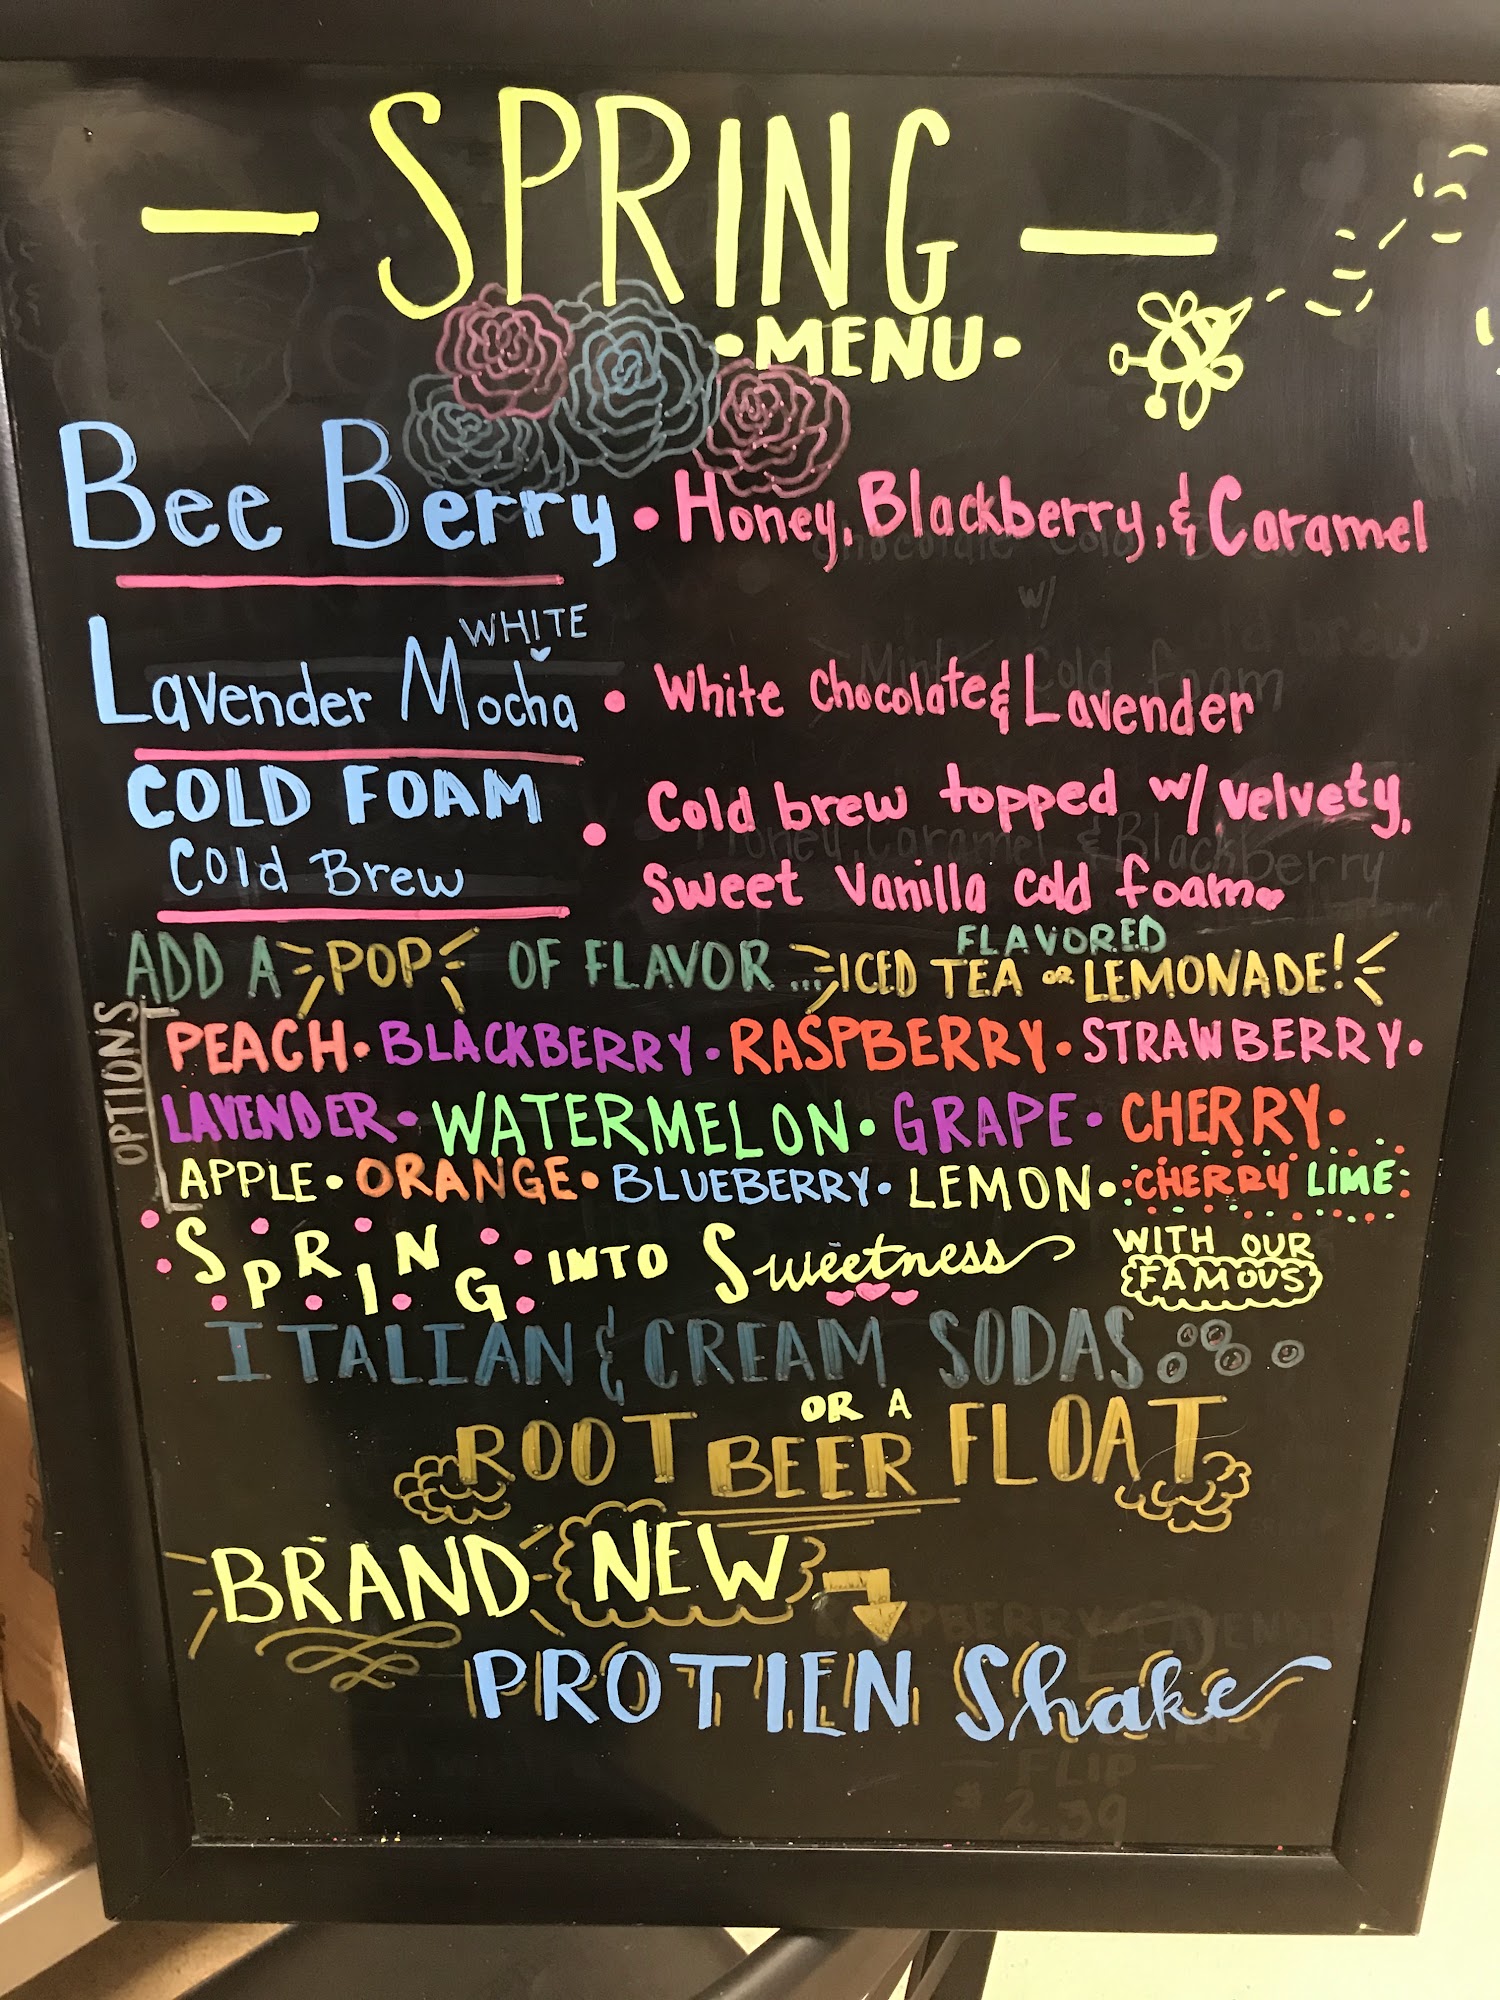 SPRING
•MENU•
Bee Berry • Honey, Blackberry, & Caramel
WHITE
Lavender Mocha • White Chocolate & Lavender
COLD FOAM
Cold Brew
• Cold brew topped w/ velvety,
Sweet Vanilla cold foam
ADD A POP OF FLAVOR... FLAVORED ICED TEA OR LEMONADE!
OPTIONS
PEACH • BLACKBERRY • RASPBERRY • STRAWBERRY •
LAVENDER • WATERMELON • GRAPE • CHERRY •
APPLE • ORANGE • BLUEBERRY • LEMON • CHERRY LIME
SPRING INTO Sweetness WITH OUR
FAMOUS
ITALIAN & CREAM SODAS
OR A
ROOT BEER FLOAT
BRAND NEW
PROTIEN Shake
FLIP
2.39